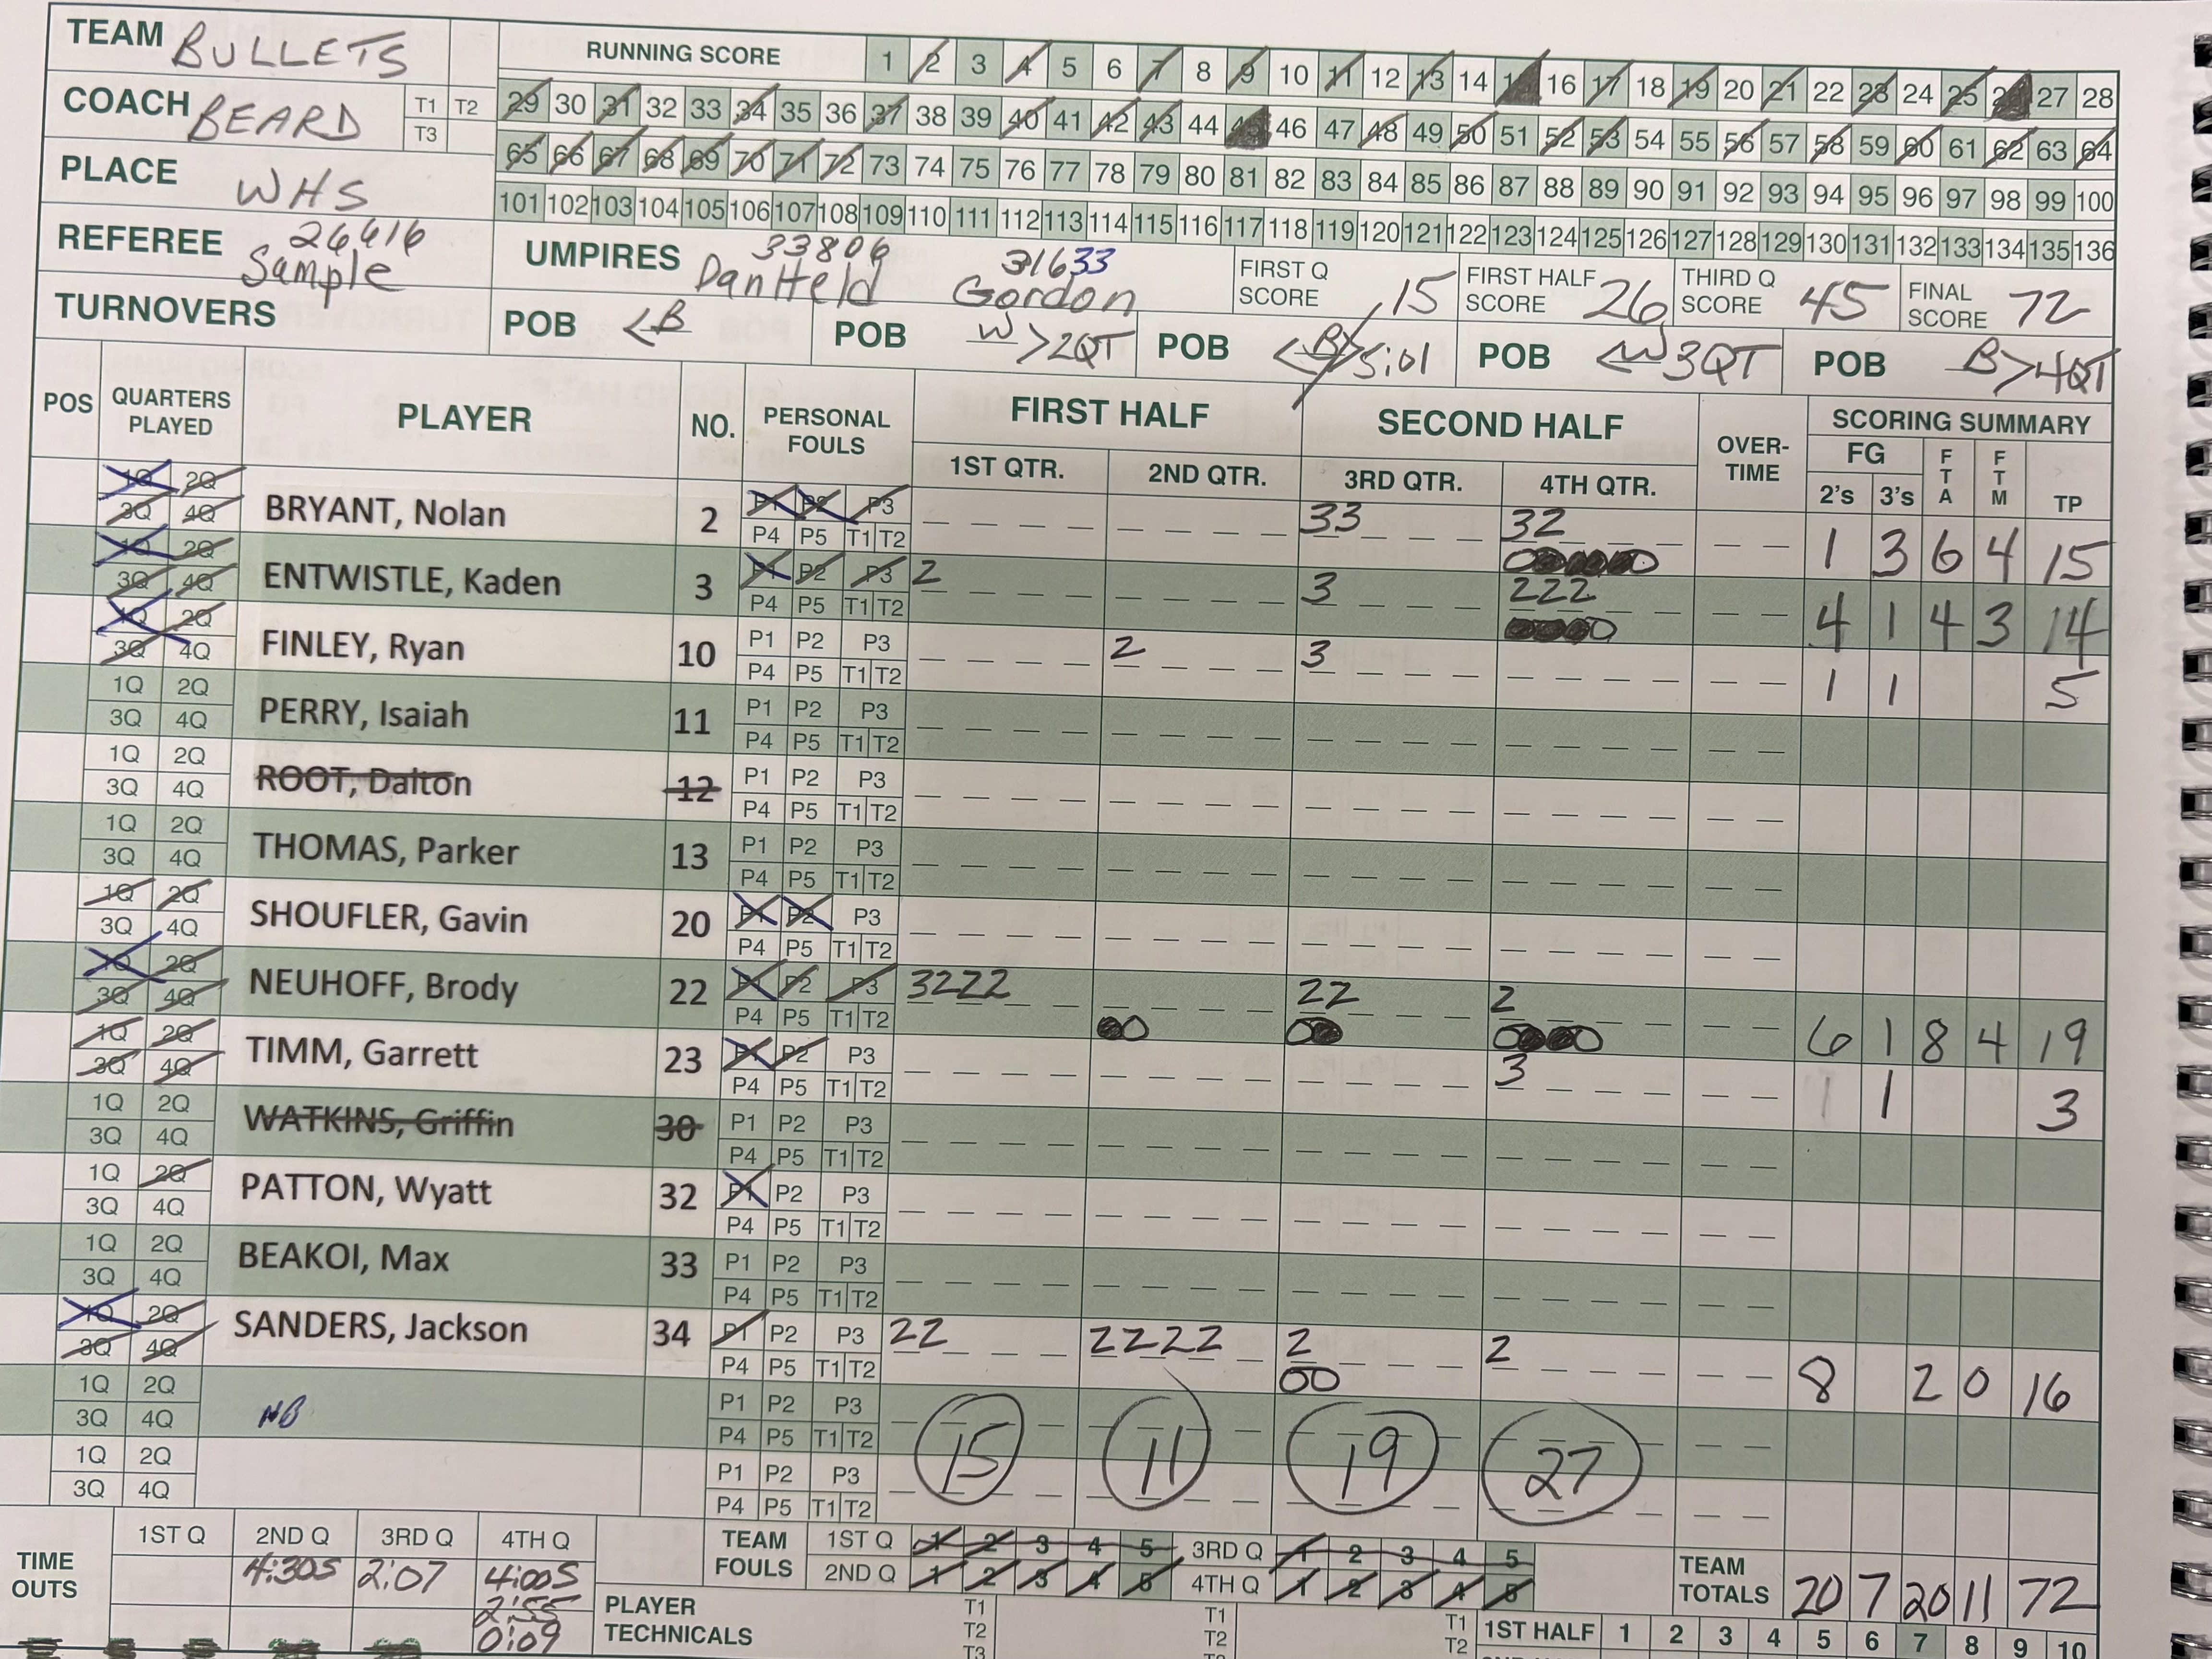 TEAM BULLETS
RUNNING SCORE 1 2 3 4 5 6 7 8 9 10 11 12 13 14 15 16 17 18 19 20 21 22 23 24 25 26 27 28
COACH BEARD T1 T2 T3
29 30 31 32 33 34 35 36 37 38 39 40 41 42 43 44 45 46 47 48 49 50 51 52 53 54 55 56 57 58 59 60 61 62 63 64
65 66 67 68 69 70 71 72 73 74 75 76 77 78 79 80 81 82 83 84 85 86 87 88 89 90 91 92 93 94 95 96 97 98 99 100
101 102 103 104 105 106 107 108 109 110 111 112 113 114 115 116 117 118 119 120 121 122 123 124 125 126 127 128 129 130 131 132 133 134 135 136
PLACE WHS
REFEREE 26616 Sample
UMPIRES 33806 Dan Held 31633 Gordon
FIRST Q SCORE 15 FIRST HALF SCORE 26 THIRD Q SCORE 45 FINAL SCORE 72
TURNOVERS POB <B POB W>2QT POB <B> 5:01 POB <W 3QT POB B>4QT
POS QUARTERS PLAYED PLAYER NO. PERSONAL FOULS FIRST HALF SECOND HALF OVER-TIME SCORING SUMMARY
1ST QTR. 2ND QTR. 3RD QTR. 4TH QTR. FG 2's 3's FTA FTM TP
1Q 2Q 3Q 4Q BRYANT, Nolan 2 P1 P2 P3 P4 P5 T1 T2 33 32 1 3 6 4 15
1Q 2Q 3Q 4Q ENTWISTLE, Kaden 3 P1 P2 P3 P4 P5 T1 T2 2 3 222 4 1 4 3 14
1Q 2Q 3Q 4Q FINLEY, Ryan 10 P1 P2 P3 P4 P5 T1 T2 2 3 1 1 5
1Q 2Q 3Q 4Q PERRY, Isaiah 11 P1 P2 P3 P4 P5 T1 T2
1Q 2Q 3Q 4Q ROOT, Dalton 12 P1 P2 P3 P4 P5 T1 T2
1Q 2Q 3Q 4Q THOMAS, Parker 13 P1 P2 P3 P4 P5 T1 T2
1Q 2Q 3Q 4Q SHOUFLER, Gavin 20 P1 P2 P3 P4 P5 T1 T2
1Q 2Q 3Q 4Q NEUHOFF, Brody 22 P1 P2 P3 P4 P5 T1 T2 3222 22 2 6 1 8 4 19
1Q 2Q 3Q 4Q TIMM, Garrett 23 P1 P2 P3 P4 P5 T1 T2 3 1 3
1Q 2Q 3Q 4Q WATKINS, Griffin 30 P1 P2 P3 P4 P5 T1 T2
1Q 2Q 3Q 4Q PATTON, Wyatt 32 P1 P2 P3 P4 P5 T1 T2
1Q 2Q 3Q 4Q BEAKOI, Max 33 P1 P2 P3 P4 P5 T1 T2
1Q 2Q 3Q 4Q SANDERS, Jackson 34 P1 P2 P3 P4 P5 T1 T2 22 2222 2 2 8 2 0 16
1Q 2Q 3Q 4Q P1 P2 P3 P4 P5 T1 T2
1Q 2Q 3Q 4Q P1 P2 P3 P4 P5 T1 T2
15 11 19 27
TIME OUTS 1ST Q 2ND Q 3RD Q 4TH Q
4:30S 2:07 4:00S
2:55
0:09
TEAM FOULS 1ST Q 1 2 3 4 5 3RD Q 1 2 3 4 5
2ND Q 1 2 3 4 5 4TH Q 1 2 3 4 5
TEAM TOTALS 20 7 20 11 72
PLAYER TECHNICALS T1 T2 T3 T1 T2 T1 T2
1ST HALF 1 2 3 4 5 6 7 8 9 10